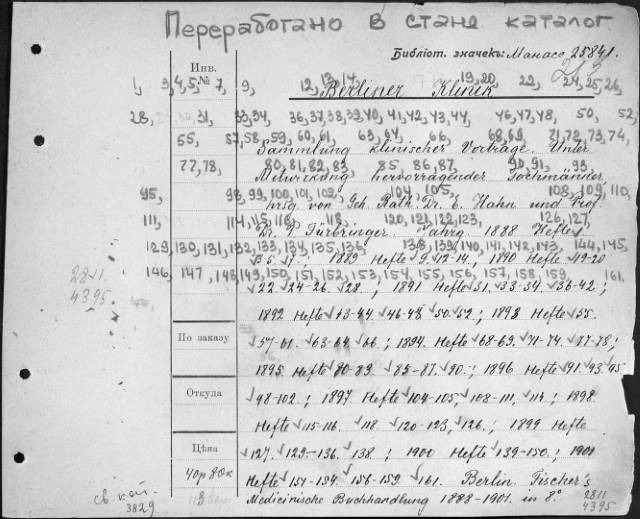 Переработано в стане. каталог
Библіот. значекъ: Манасс. 25841.
212
Инв.
№
1, 3,4,5, 7, 9, 12,13,14, 19,20, 22, 24,25,26,
Berliner Klinik
28, 31, 33,34, 36,37,38,39,40, 41,42,43,44, 46,47,48, 50, 52,
55, 57,58,59,60,61, 63,64, 66, 68,69, 71,72,73,74,
Sammlung klinischer Vorträge. Unter
77,78, 80,81,82,83, 85,86,87, 90,91, 93,
Mitwirkung hervorragender Fachmänner
95, 98,99,100,101,102, 104,105, 108,109,110,
hrsg. von Geh. Rath. Dr. E. Hahn und Prof.
111, 114,115,116, 118, 120,121,122,123, 126,127,
Dr. P. Fürbringer. Jahrg. 1888 Hefte 1.
129,130,131,132,133,134,135,136, 138,139,140,141,142,143, 144,145,
3-5. 7.; 1889 Hefte 9. 12-14.; 1890 Hefte 19-20
146, 147, 148,149,150,151,152,153,154,155,156,157,158,159, 161.
28II
4395
22. 24-26. 28.; 1891 Hefte 31. 33-34. 36-42;
1892 Hefte 43-44. 46-48. 50. 52; 1893 Hefte 55.
По заказу
57-61. 63-64. 66.; 1894. Hefte 68-69. 71-74. 77-78;
1895 Hefte 80-83. 85-87. 90.; 1896 Hefte 91. 93. 95
Откуда
98-102.; 1897 Hefte 104-105, 108-111, 114; 1898
Hefte 115-116. 118. 120-123, 126.; 1899 Hefte
Цѣна
127. 129-136. 138; 1900 Hefte 139-150.; 1901
40р 80к
Hefte 151-154. 156-159. 161. Berlin. Fischer's
св. кат.
3829
Medicinische Buchhandlung 1888-1901. in 8°.
28II
4395